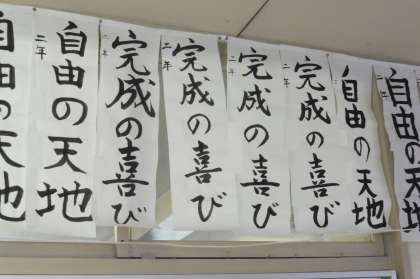 自由の天地
二年
自由の天地
二年
完成の喜び
二年
完成の喜び
二年
完成の喜び
二年
完成の喜び
二年
自由の天地
二年